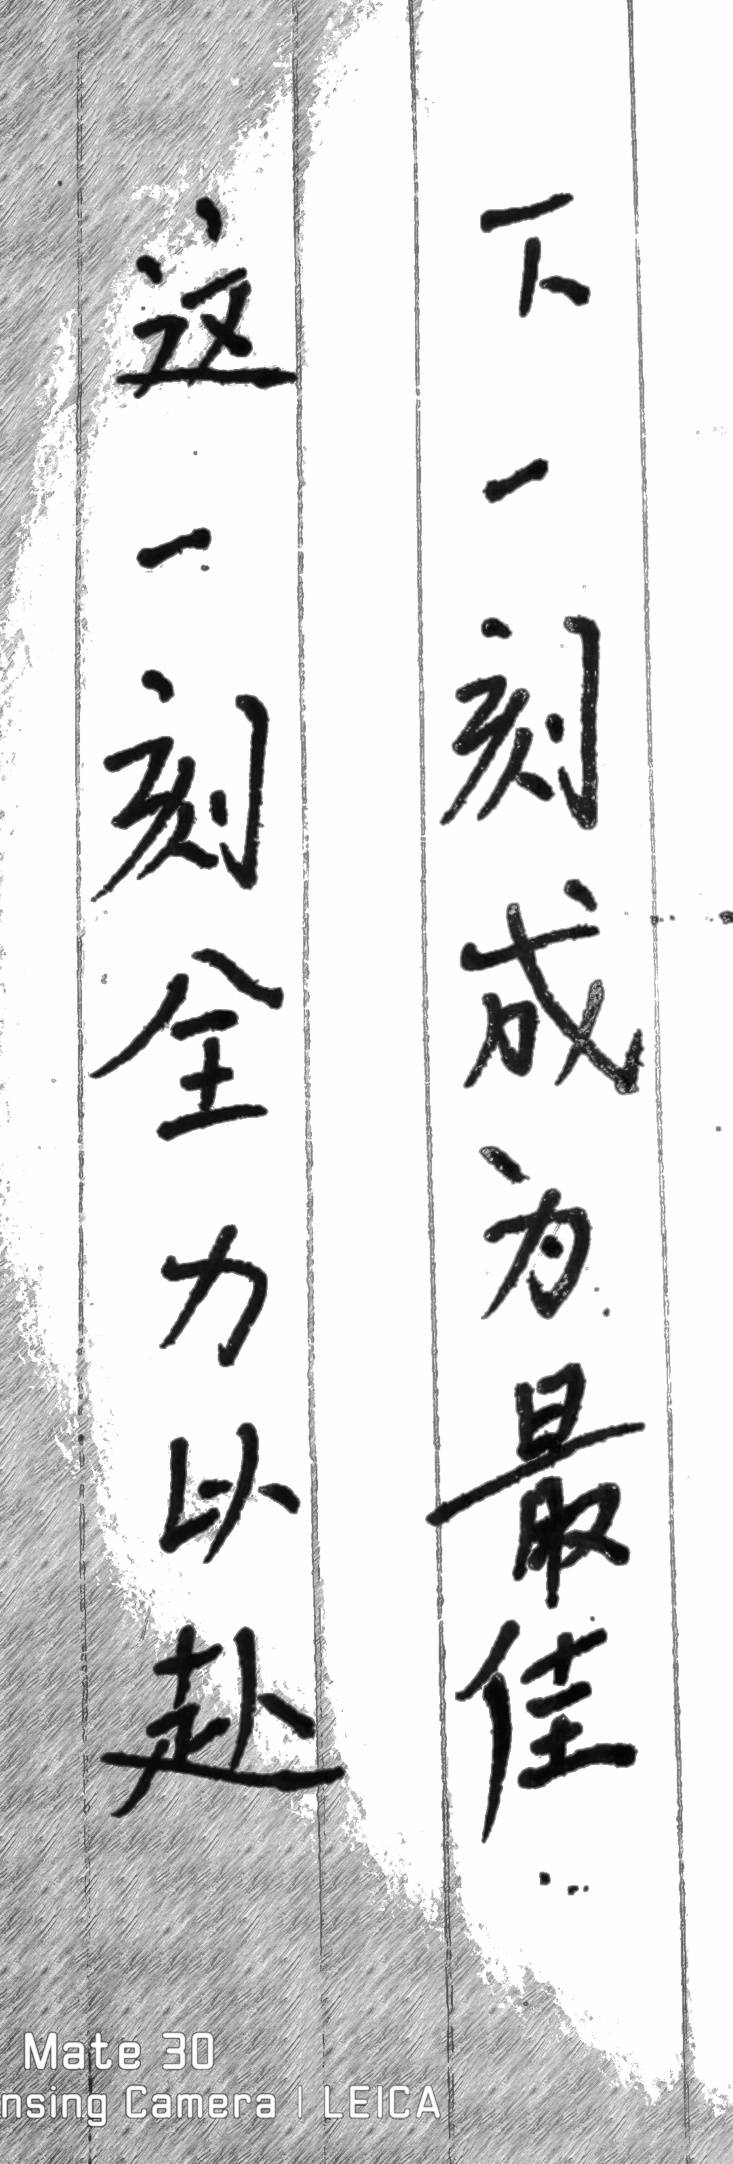 下一刻成为最佳
这一刻全力以赴
Mate 30
nsing Camera | LEICA